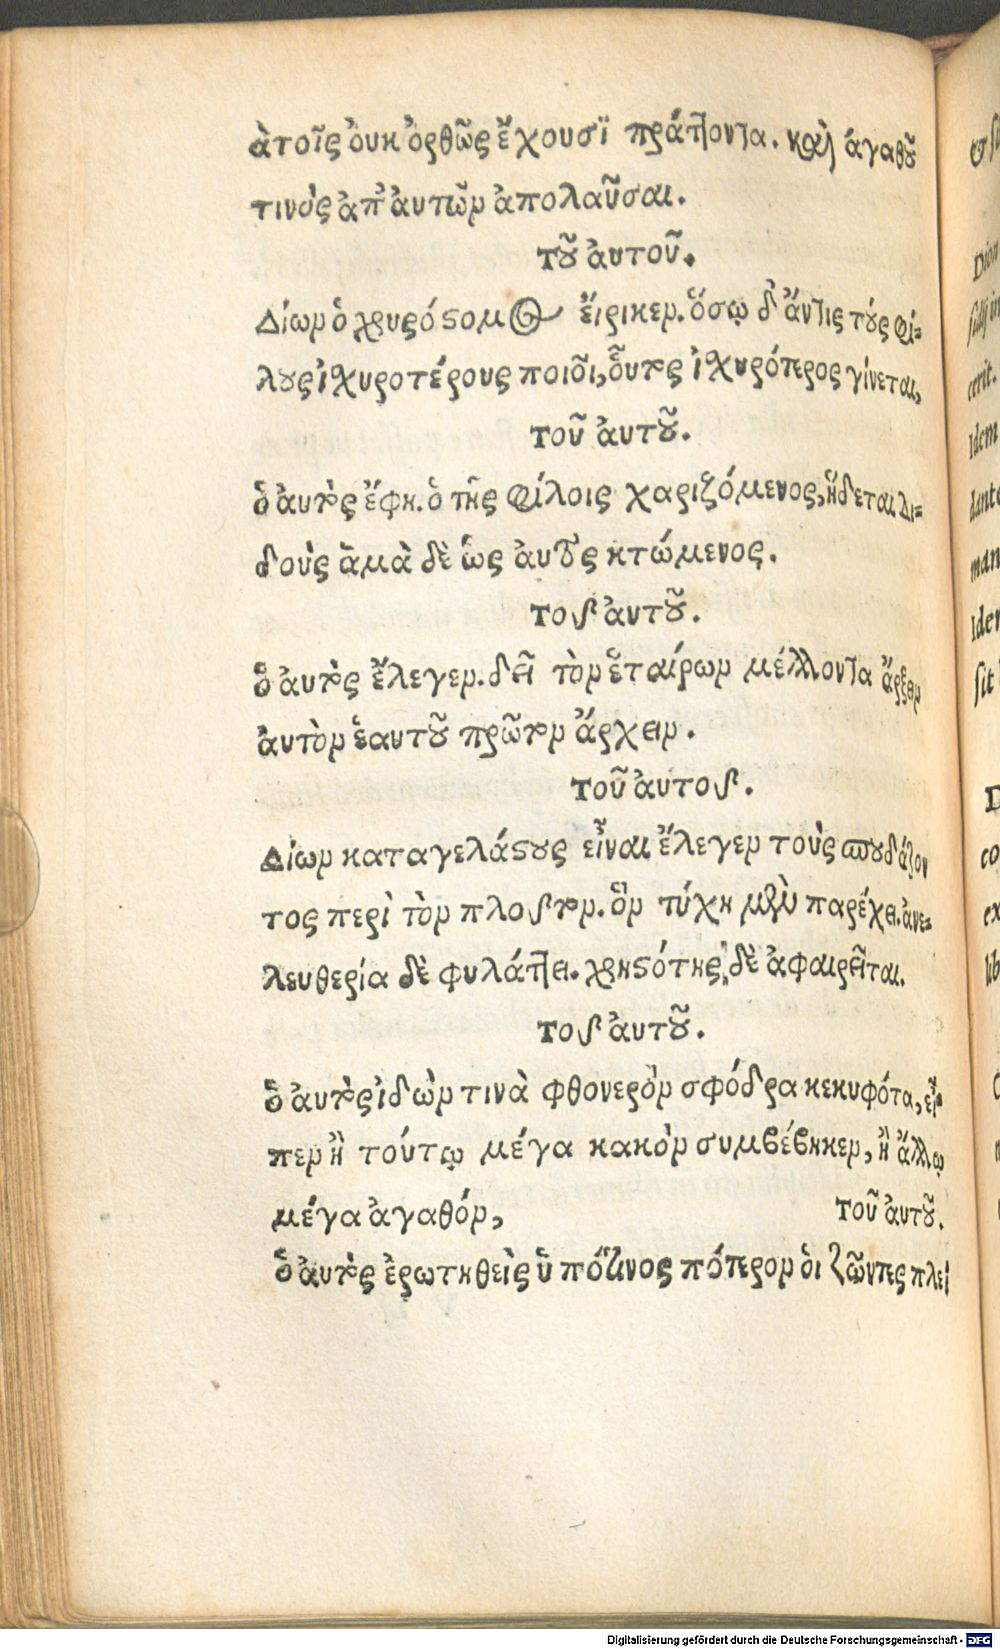 ἀτοῖς ὀυκ ὀρθῶς ἔχουσϊ πράττοντα. καὶ ἀγαθοῦ
τινὸς ἀπ' ἀυτῶν ἀπολαῦσαι.
τοῦ ἀυτοῦ.
Δίων ὁ χρυσόστομος ἔιρικεν. ὅσῳ δ' ἄντις τοὺς φί-
λους ἰσχυροτέρους ποιοῖ, ὅυτος ἰσχυρότερος γίνεται,
τοῦ ἀυτοῦ.
ὁ ἀυτὸς ἔφη. ὁ τῆς φίλοις χαριζόμενος, ἥδεται δι-
δοὺς ἅμὰ δὲ ὡς ἀυτὸς κτώμενος.
τοῦ ἀυτοῦ.
ὁ ἀυτὸς ἔλεγεν. δεῖ τὸν ἑταίρων μέλλοντα ἄρξειν
ἀυτὸν ἑαυτοῦ πρῶτον ἄρχειν.
τοῦ ἀυτοῦ.
Δίων καταγελάστους εἶναι ἔλεγεν τοὺς σπουδάζον
τος περὶ τὸν πλοῦτον. ὃν τύχη μὲν παρέχει. ἀνε-
λευθερία δὲ φυλάττει. χρηστότης, δὲ ἀφαιρεῖται.
τοῦ ἀυτοῦ.
ὁ ἀυτὸς ἰδὼν τινὰ φθονερὸν σφόδρα κεκυφότα, εἶ-
πεν ἢ τούτῳ μέγα κακὸν συμβέβηκεν, ἢ ἄλλῳ
μέγα ἀγαθόν, τοῦ ἀυτοῦ.
ὁ ἀυτὸς ἐρωτηθεὶς ὑπότινος πότερον ὁι ζῶντες πλεί
Digitalisierung gefördert durch die Deutsche Forschungsgemeinschaft - DFG